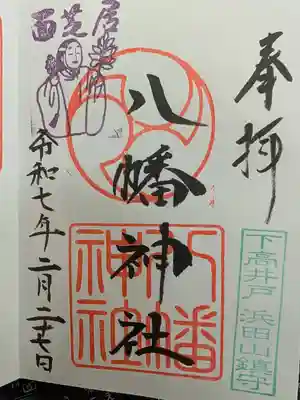 奉拝
下高井戸 浜田山鎮守
八幡神社
八幡神社
令和七年二月二十七日